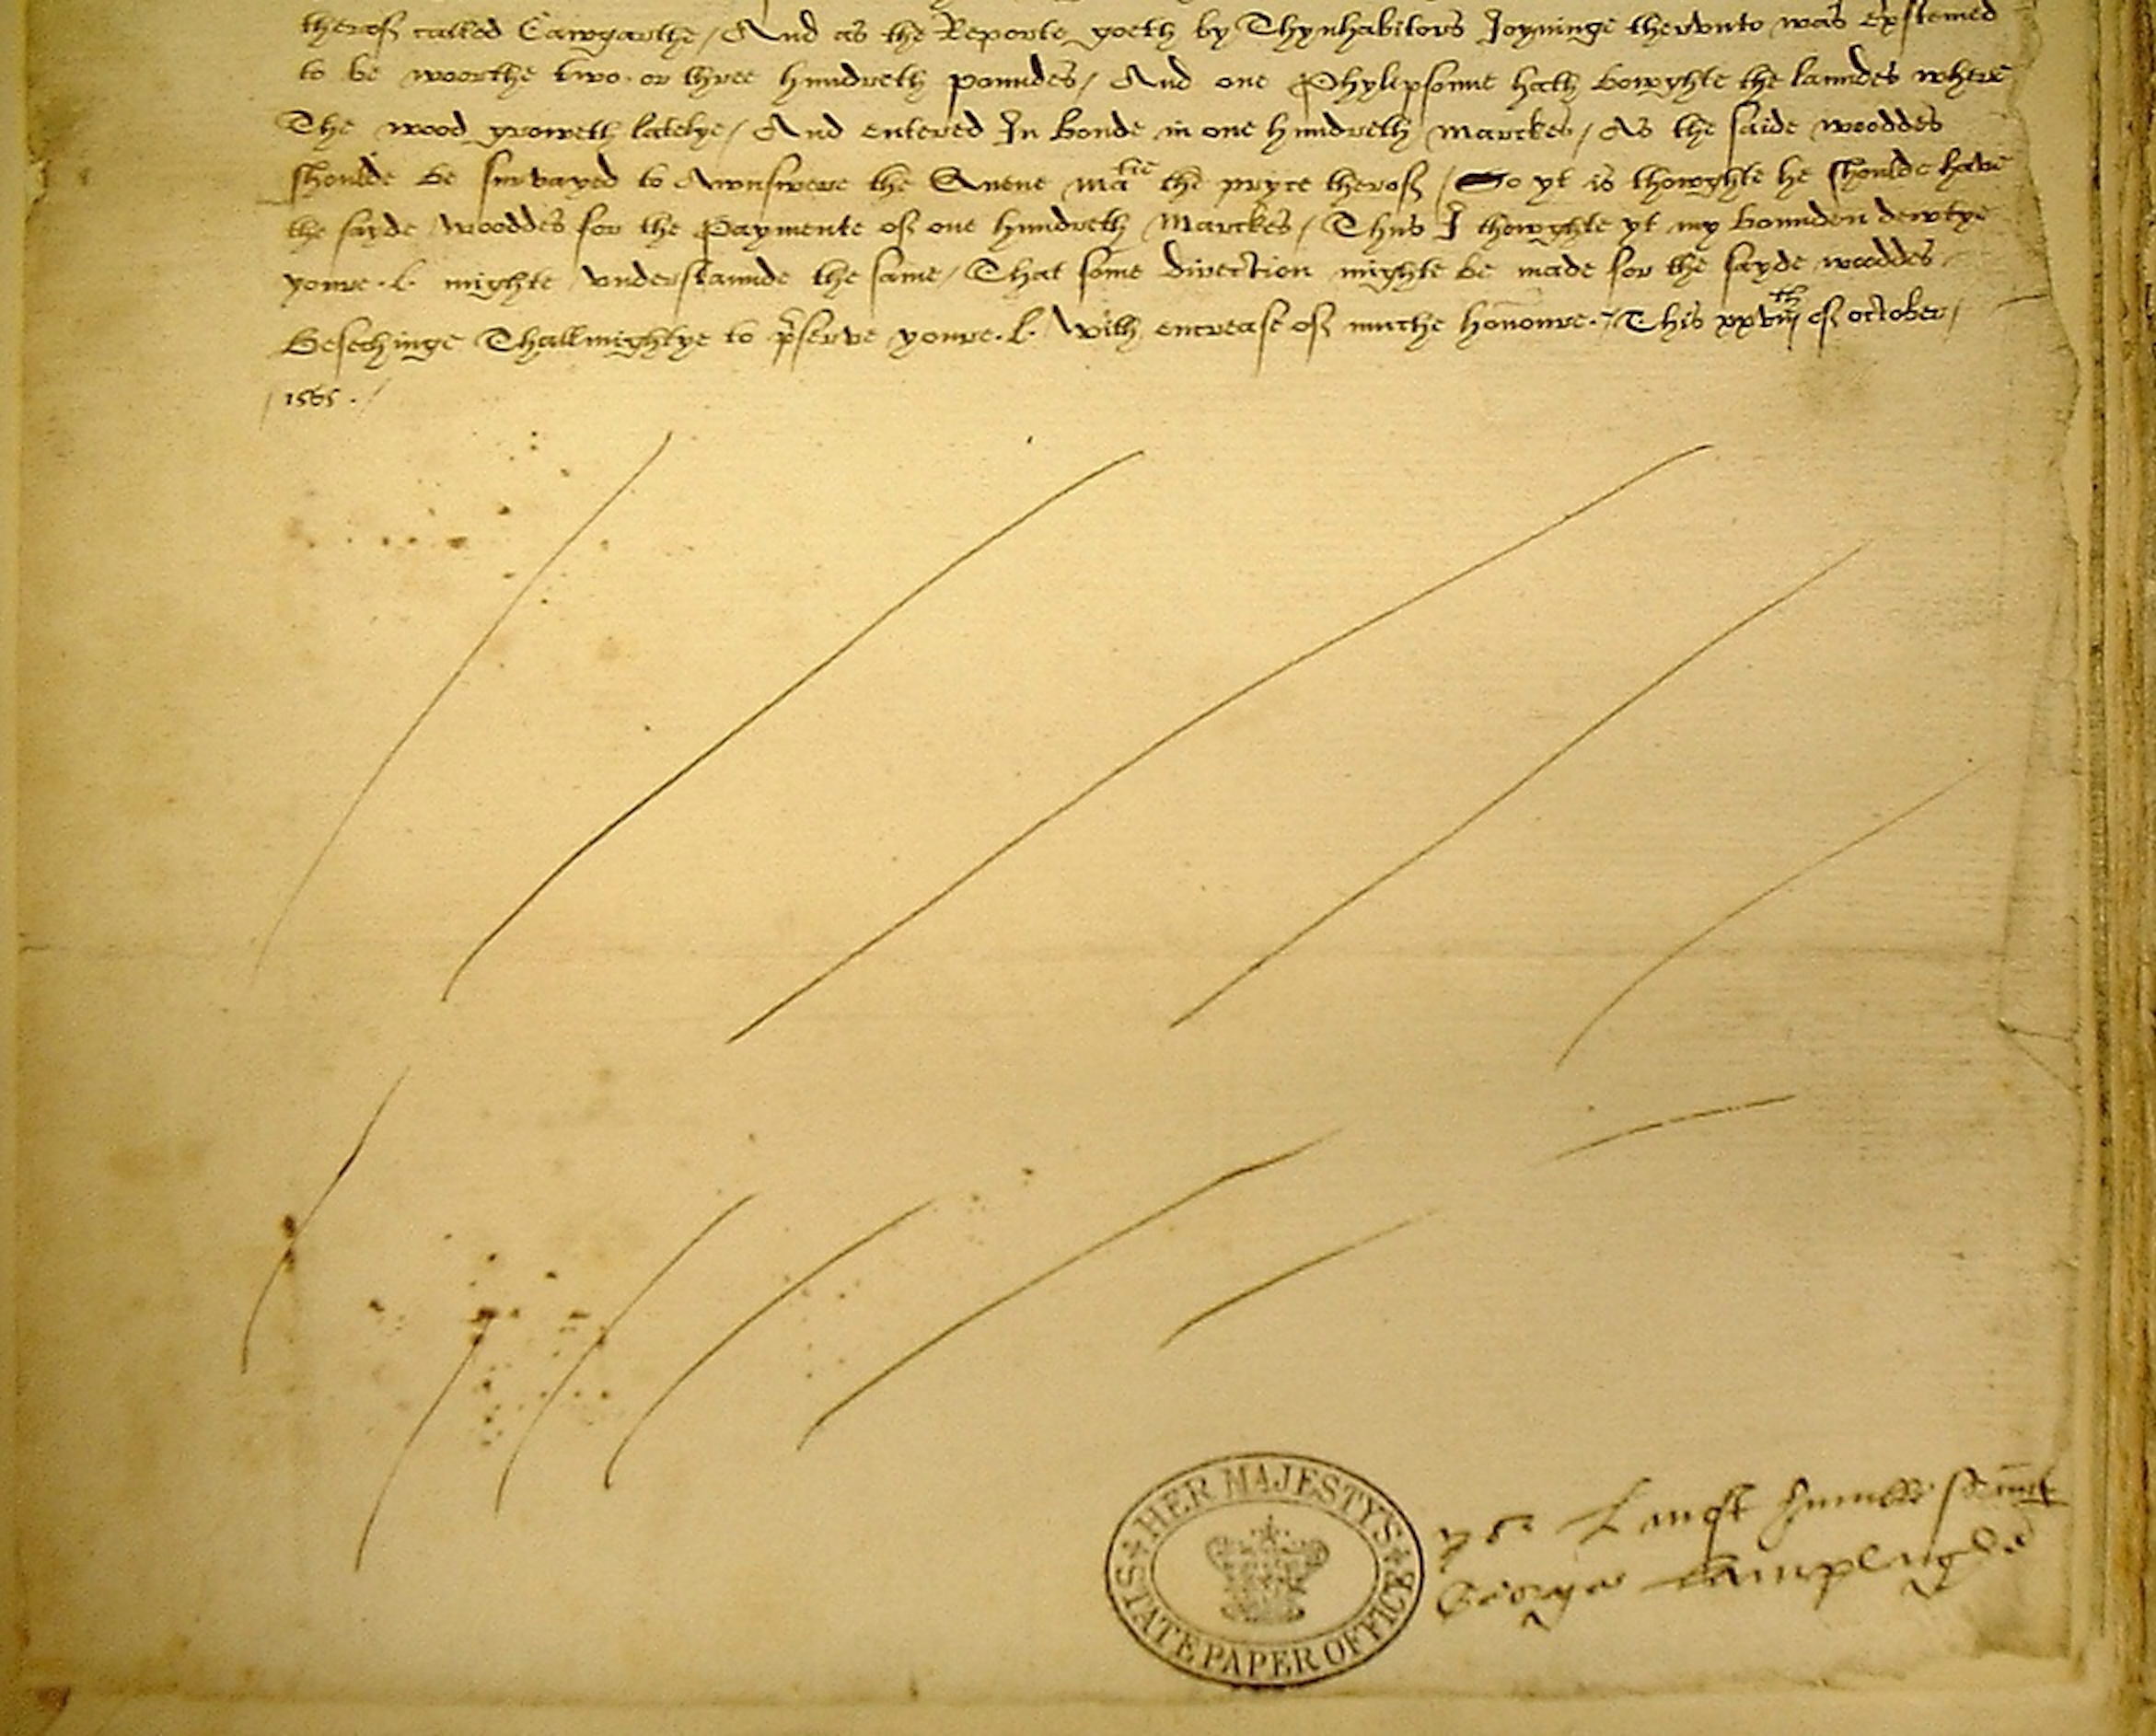 therof called Cawgarthe / And as the Reporte goeth by Thynhabitors Joyninge thervnto was Exstemed
to be woorthe two or three hundreth poundes / And one Phylipsonne hath bowghte the landes where
The wood groweth latelye / And entered In bonde in one hundreth Marckes / As the saide wooddes
shoulde be survayed to Awnswere the Quene matie the pryce therof / So yt is thowghte he shoulde have
the sayde wooddes for the Paymente of one hundreth Marckes / Thus I thowghte yt my bounden dewtye
youre .l. mighte vnderstaunde the same / That some direction mighte be made for the sayde wooddes
Besechinge Thallmightye to pserve youre .l. with encrease of muche honoure. / This xxviijth of october /
1565 . /
HER MAJESTY'S
STATE PAPER OFFICE
humble
George Lamplughe